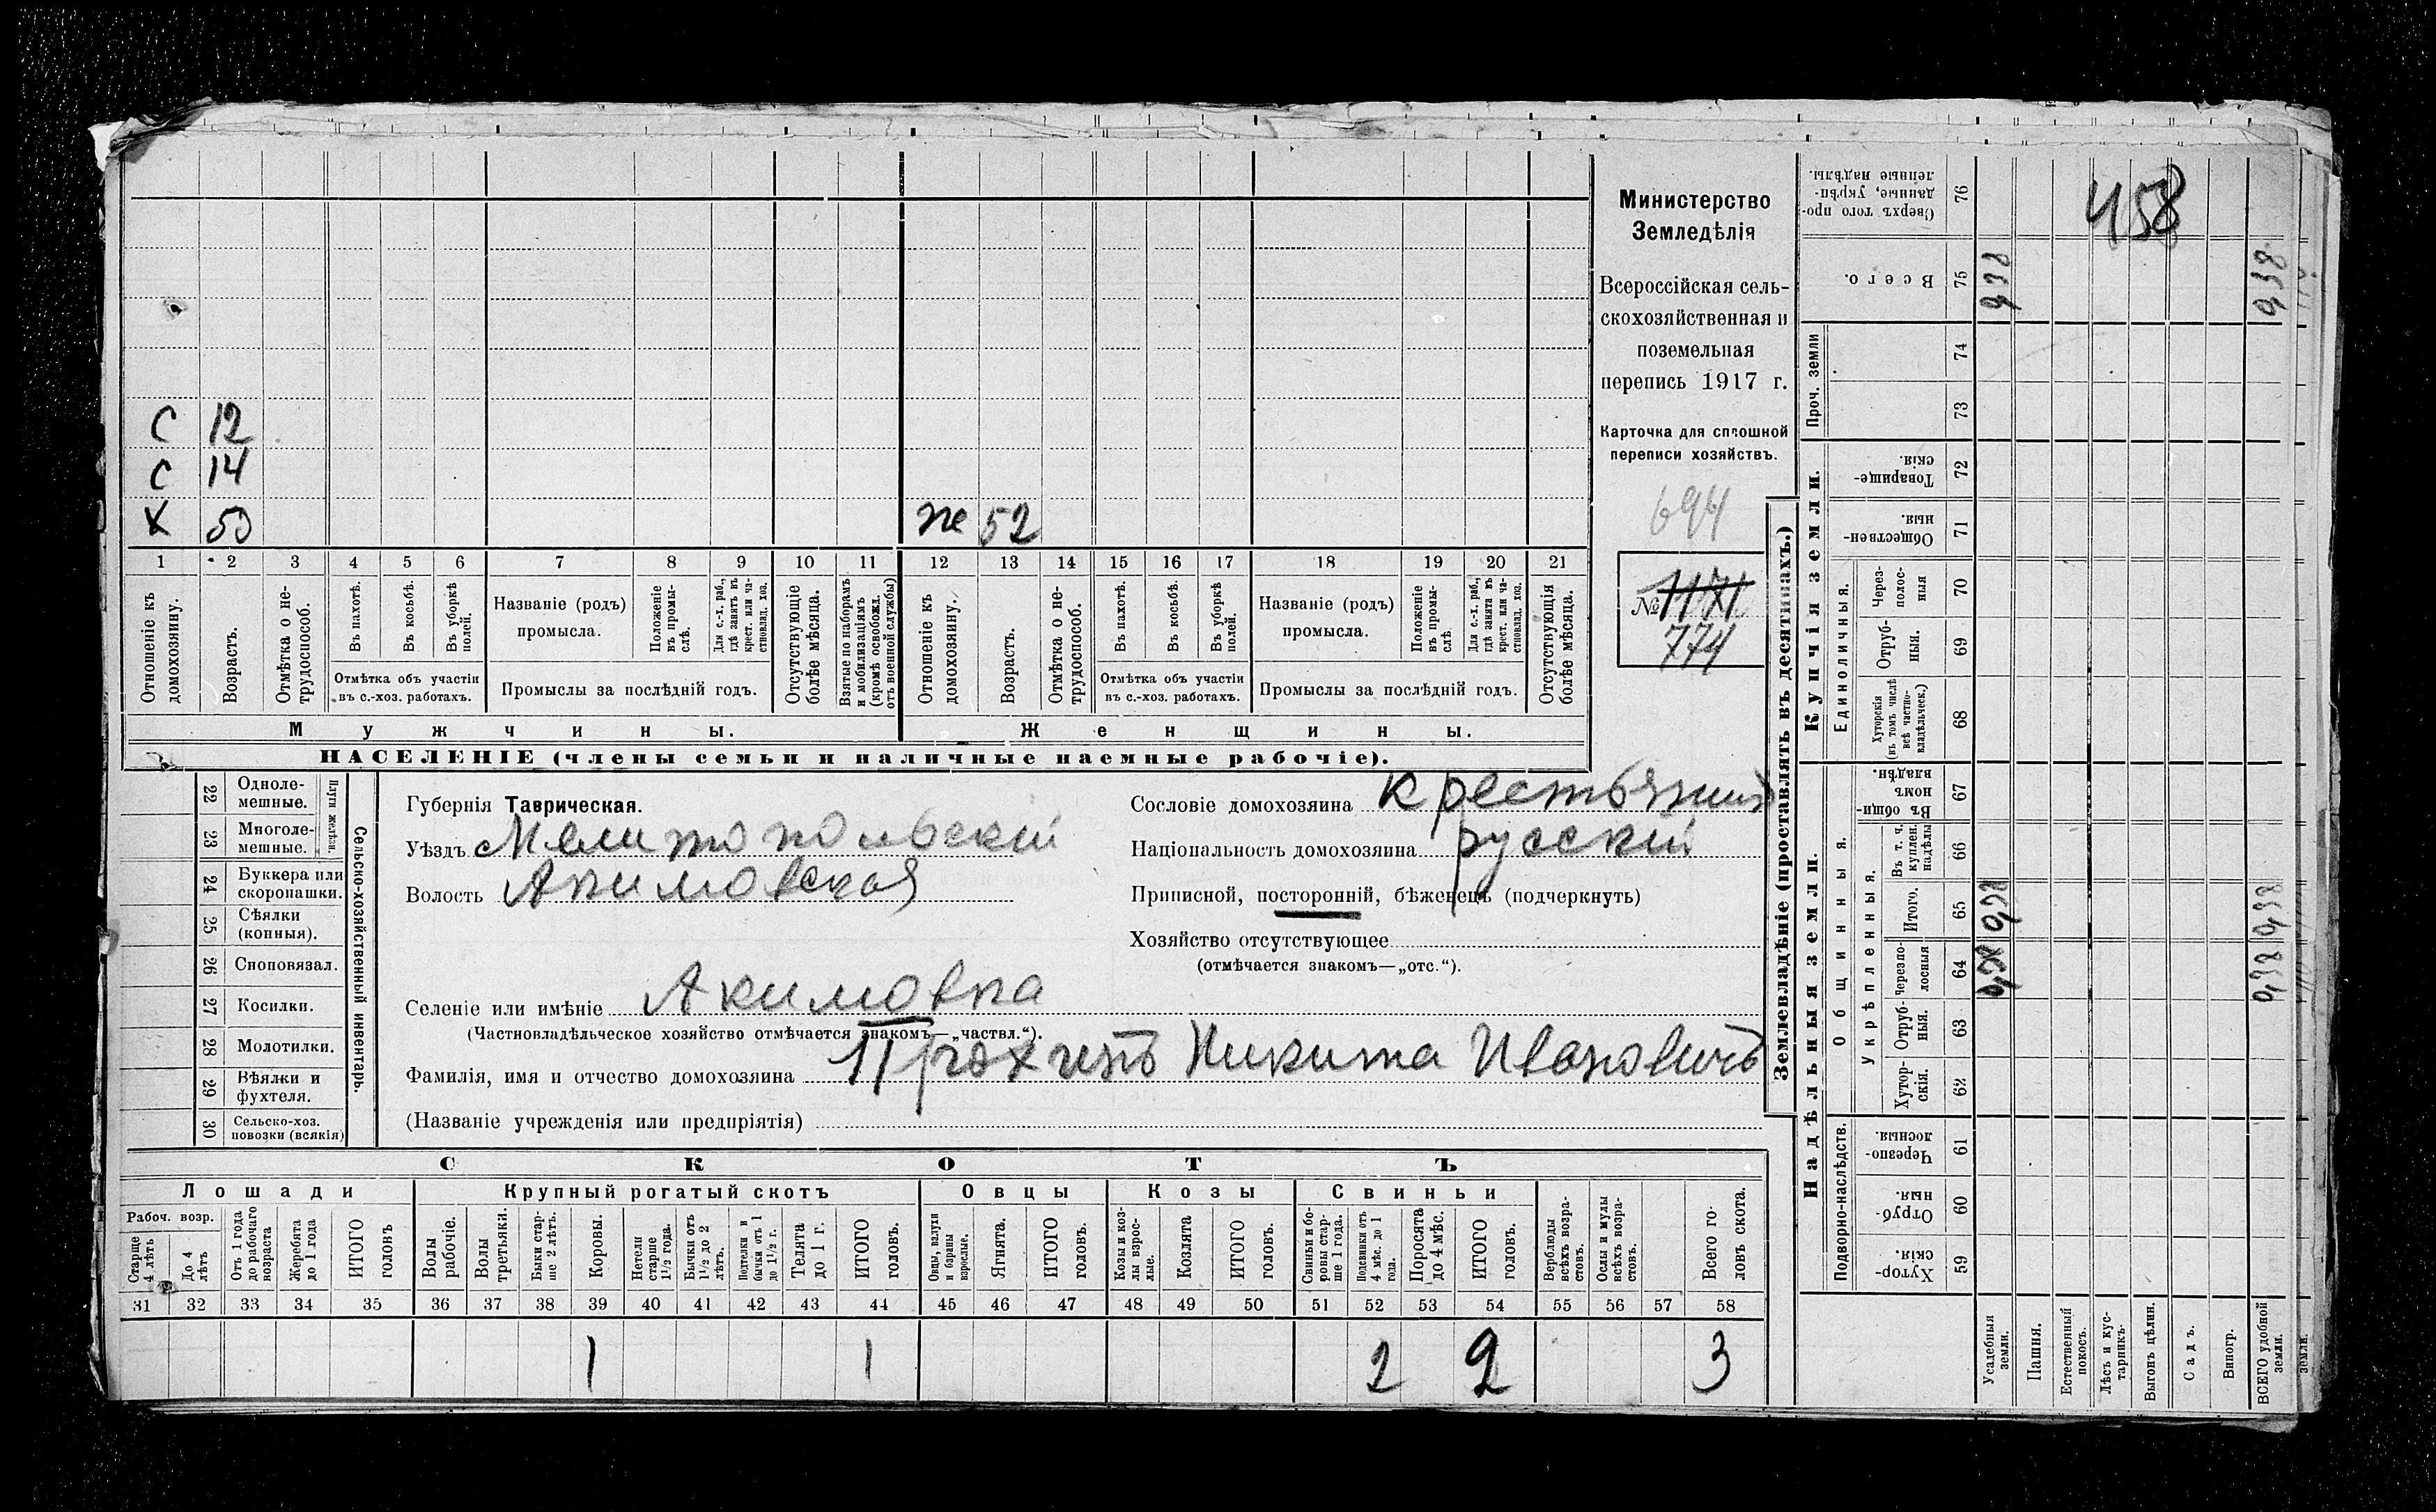 С 12
С 14
Х 53 же 52
1 2 3 4 5 6 7 8 9 10 11 12 13 14 15 16 17 18 19 20 21
Отношеніе къ домохозяину.
Возрастъ.
Отмѣтка о нетрудоспособ.
Въ пахотѣ.
Въ косьбѣ.
Въ уборкѣ полей.
Отмѣтка объ участіи
въ с.-хоз. работахъ.
Названіе (родъ)
промысла.
Положеніе въ промыслѣ.
Для с.-х. раб., гдѣ занятъ въ крест. или частновлад. хоз.
Промыслы за послѣдній годъ.
Отсутствующіе болѣе мѣсяца.
Взятые по наборамъ и мобилизаціямъ (кромѣ освобожд. отъ военной службы)
Отношеніе къ домохозяину.
Возрастъ.
Отмѣтка о нетрудоспособ.
Въ пахотѣ.
Въ косьбѣ.
Въ уборкѣ полей.
Отмѣтка объ участіи
въ с.-хоз. работахъ.
Названіе (родъ)
промысла.
Положеніе въ промыслѣ.
Для с.-х. раб., гдѣ занята въ крест. или частновлад. хоз.
Промыслы за послѣдній годъ.
Отсутствующія болѣе мѣсяца.
Мужчины. Женщины.
НАСЕЛЕНІЕ (члены семьи и наличные наемные рабочіе).
Министерство
Земледѣлія
Всероссійская сель-
скохозяйственная и
поземельная
перепись 1917 г.
Карточка для сплошной
переписи хозяйствъ.
694
№ 1171
774
22 Одноле-
мешные.
23 Многоле-
мешные.
Плуги желѣзн.
24 Буккера или
скоропашки.
25 Сѣялки
(конныя).
26 Сноповязал.
27 Косилки.
28 Молотилки.
29 Вѣялки и
фухтеля.
30 Сельско-хоз.
повозки (всякія)
Сельско-хозяйственный инвентарь.
Губернія Таврическая.
Уѣздъ Мелитопольскій
Волость Акимовская
Селеніе или имѣніе Акимовка
(Частновладѣльческое хозяйство отмѣчается знакомъ—„частвл.“).
Фамилія, имя и отчество домохозяина Никита Ивановичъ
(Названіе учрежденія или предпріятія)
Сословіе домохозяина крестьянинъ
Національность домохозяина русскій
Приписной, посторонній, бѣженецъ (подчеркнуть)
Хозяйство отсутствующее
(отмѣчается знакомъ—„отс.“).
СКОТЪ
Лошади
Рабоч. возр.
Старше 4 лѣтъ
До 4 лѣтъ
Отъ 1 года до рабочаго возраста
Жеребята до 1 года
ИТОГО головъ
Крупный рогатый скотъ
Волы рабочіе.
Волы третьяки.
Быки старше 2 лѣтъ.
Коровы.
Нетели старше 1½ года.
Бычки отъ 1½ до 2 лѣтъ.
Подтелки и бычки отъ 1 до 1½ г.
Телята до 1 г.
ИТОГО головъ.
Овцы
Овцы, валухи и бараны взрослые.
Ягнята.
ИТОГО головъ.
Козы
Козы и козлы взрослые.
Козлята
ИТОГО головъ.
Свиньи
Свиньи и боровы старше 1 года.
Подсвинки отъ 4 мѣс. до 1 года.
Поросята до 4 мѣс.
ИТОГО головъ.
Верблюды всѣхъ возрастовъ.
Ослы и мулы всѣхъ возрастовъ.
Всего головъ скота.
31 32 33 34 35 36 37 38 39 40 41 42 43 44 45 46 47 48 49 50 51 52 53 54 55 56 57 58
1 1 2 2 3
Землевладѣніе (проставлять въ десятинахъ.)
458
Сверхъ того проданные, укрѣпленные надѣлы. 76
Всего. 75 0,38 0,38
Проч. земли 74
73
Купчія земли.
Товарищескія. 72
Общественныя. 71
Единоличныя.
Черезполосныя 70
Отрубныя. 69
Хуторскія (въ томъ числѣ всѣ частновладѣльческ.) 68
Надѣльныя земли.
Общинныя.
Въ общинномъ владѣн. 67
Укрѣпленныя.
Въ т. ч. куплен. надѣлы 66
Итого. 65 0,38 0,38
Черезполосныя 64 0,38 0,38
Отрубныя. 63
Хуторскія. 62
Подворно-наслѣдств.
Черезполосныя. 61
Отрубныя. 60
Хуторскія. 59
Усадебныя земли.
Пашня.
Естественный покосъ.
Лѣсъ и кустарникъ.
Выгонъ цѣлин.
Садъ.
Виногр.
ВСЕГО удобной земли.
земли.